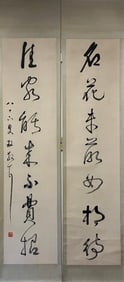 名花未落如相待
佳客能來不費招
八十六叟